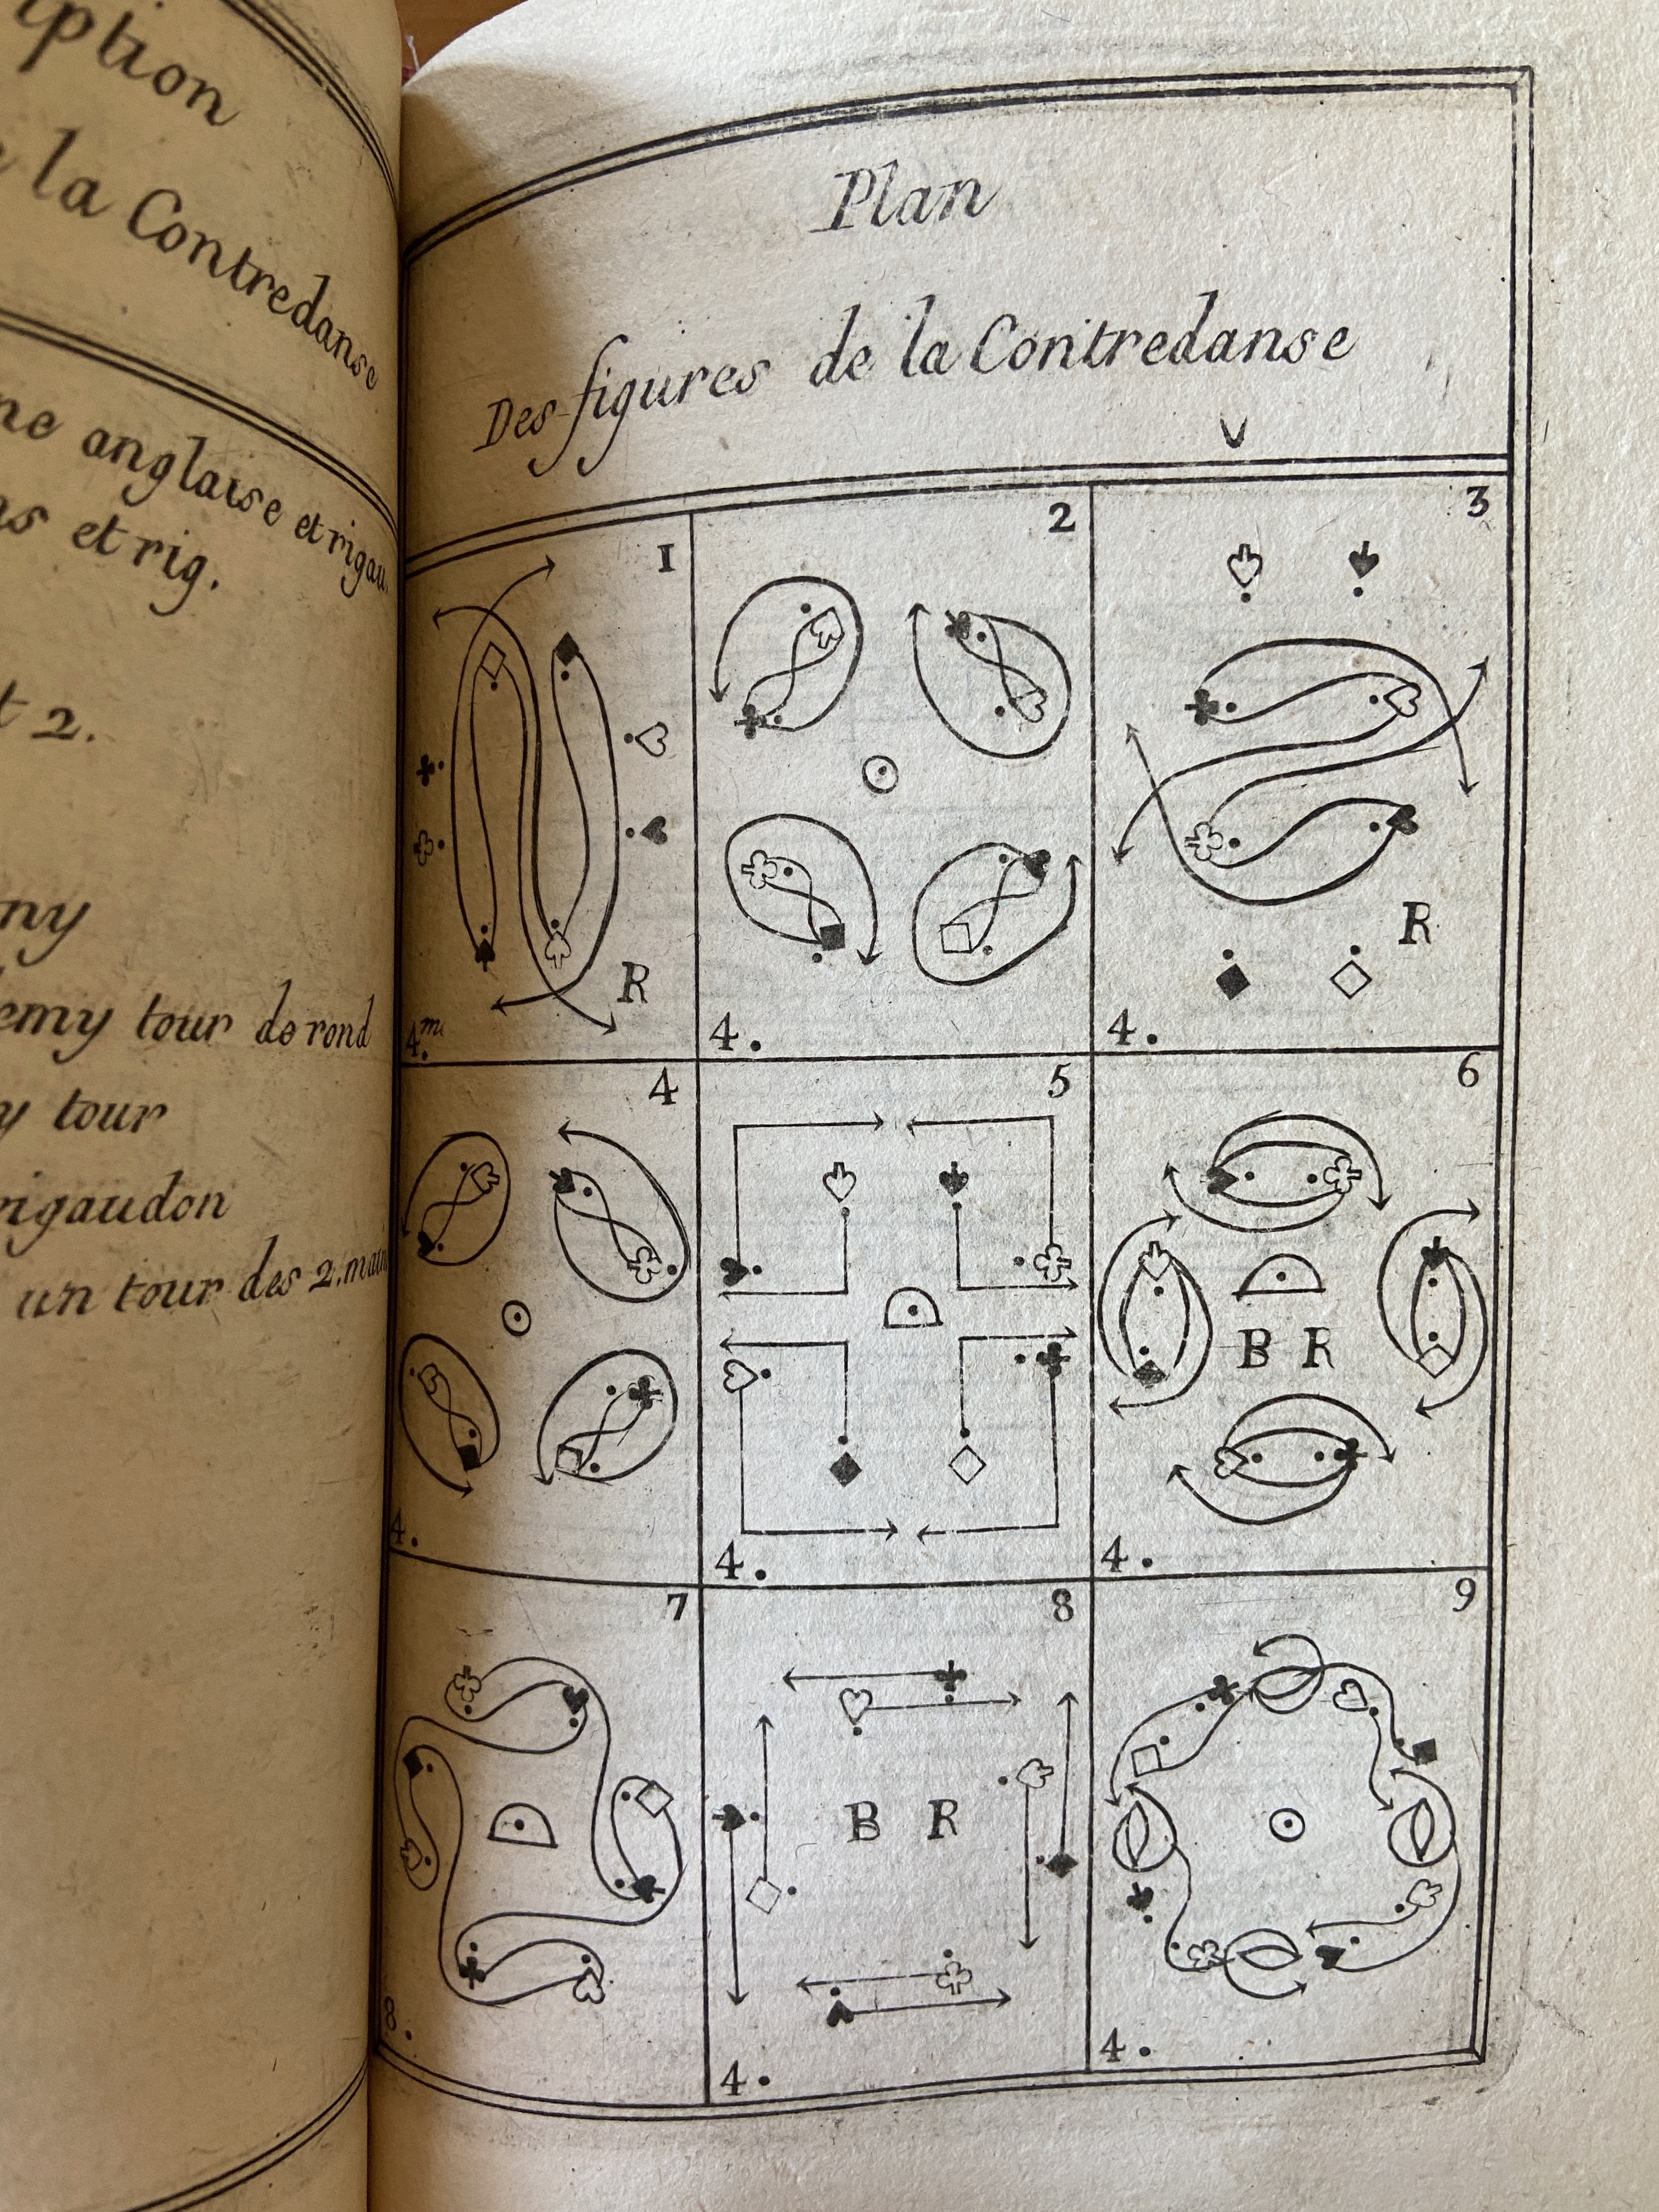 la Contredanse
anglaise et rigau.
et rig.
2.
tour de rond
tour
rigaudon
un tour des 2. main
Plan
Des figures de la Contredanse
1
R
4.m.
2
4.
3
R
4.
4
4.
5
4.
6
B R
4.
7
8.
8
B R
4.
9
4.